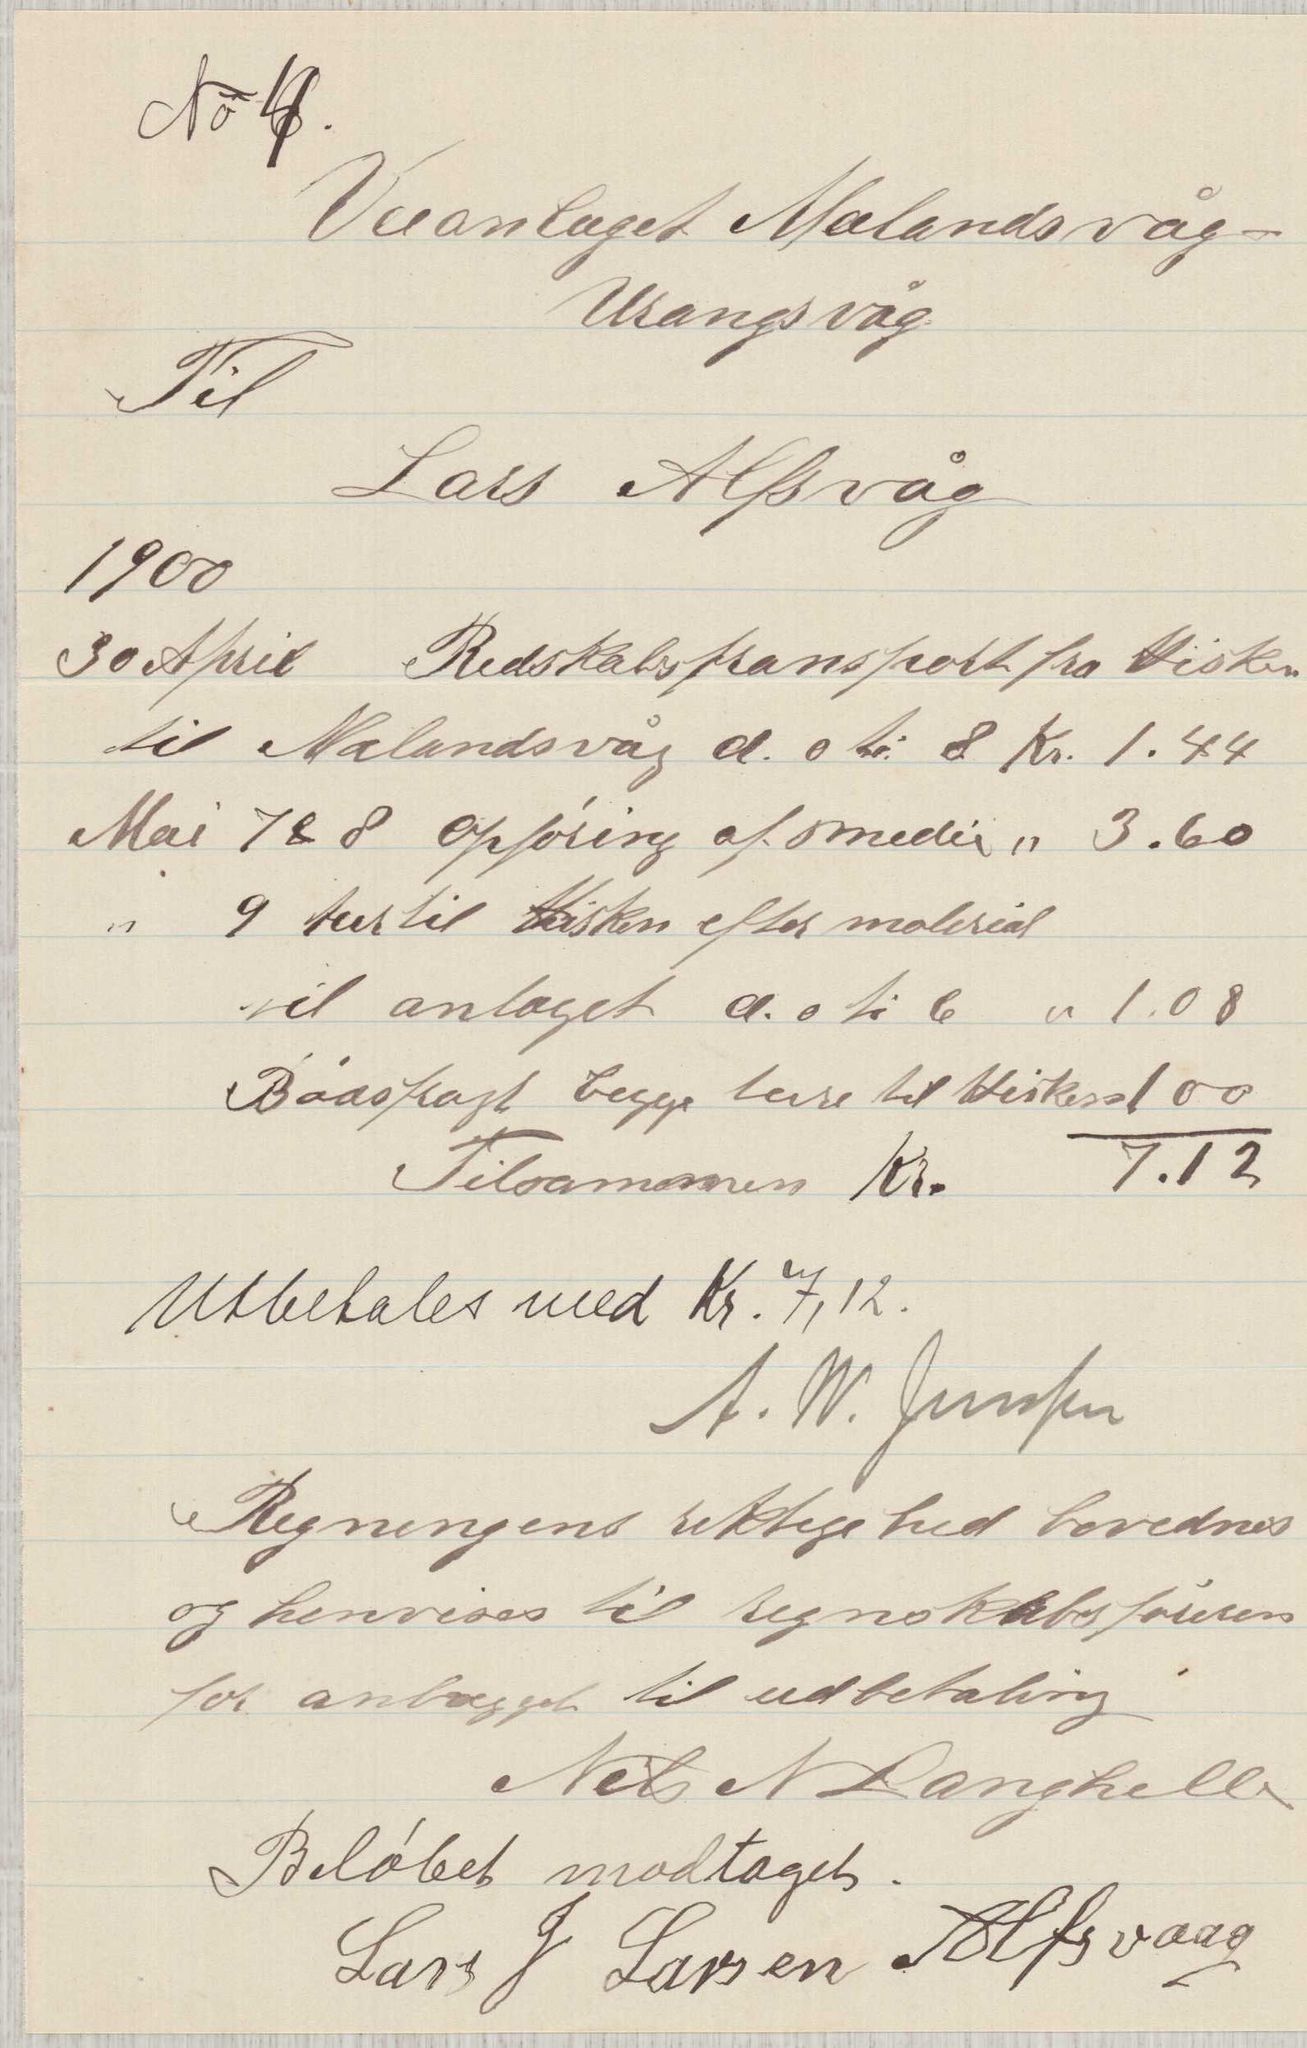 No
Veianlæget Mælandsvåg-
Urangsvåg.
Til
Lars Alfsvåg
1900
30 April Redskabstransport fra Hisken
til Mælandsvåg d. o ti. 8 Kr. 1.44
Mai 7 & 8 Opföring af smedie „ 3.60
„ 9 tur til Hisken efter material
til anlæget d. o ti 6 „ 1.08
Bådsfragt begge ture til Hisken 1 00
Tilsammen Kr. 7.12
Utbetales med Kr. 7,12.
A. W. Jensen
Regningens riktighed bevidnes
og henvises til regnskabsföreren
for anlægget til udbetaling
Nils N Langhelle
Belöbet modtaget.
Lars J Larsen Alfsvaag